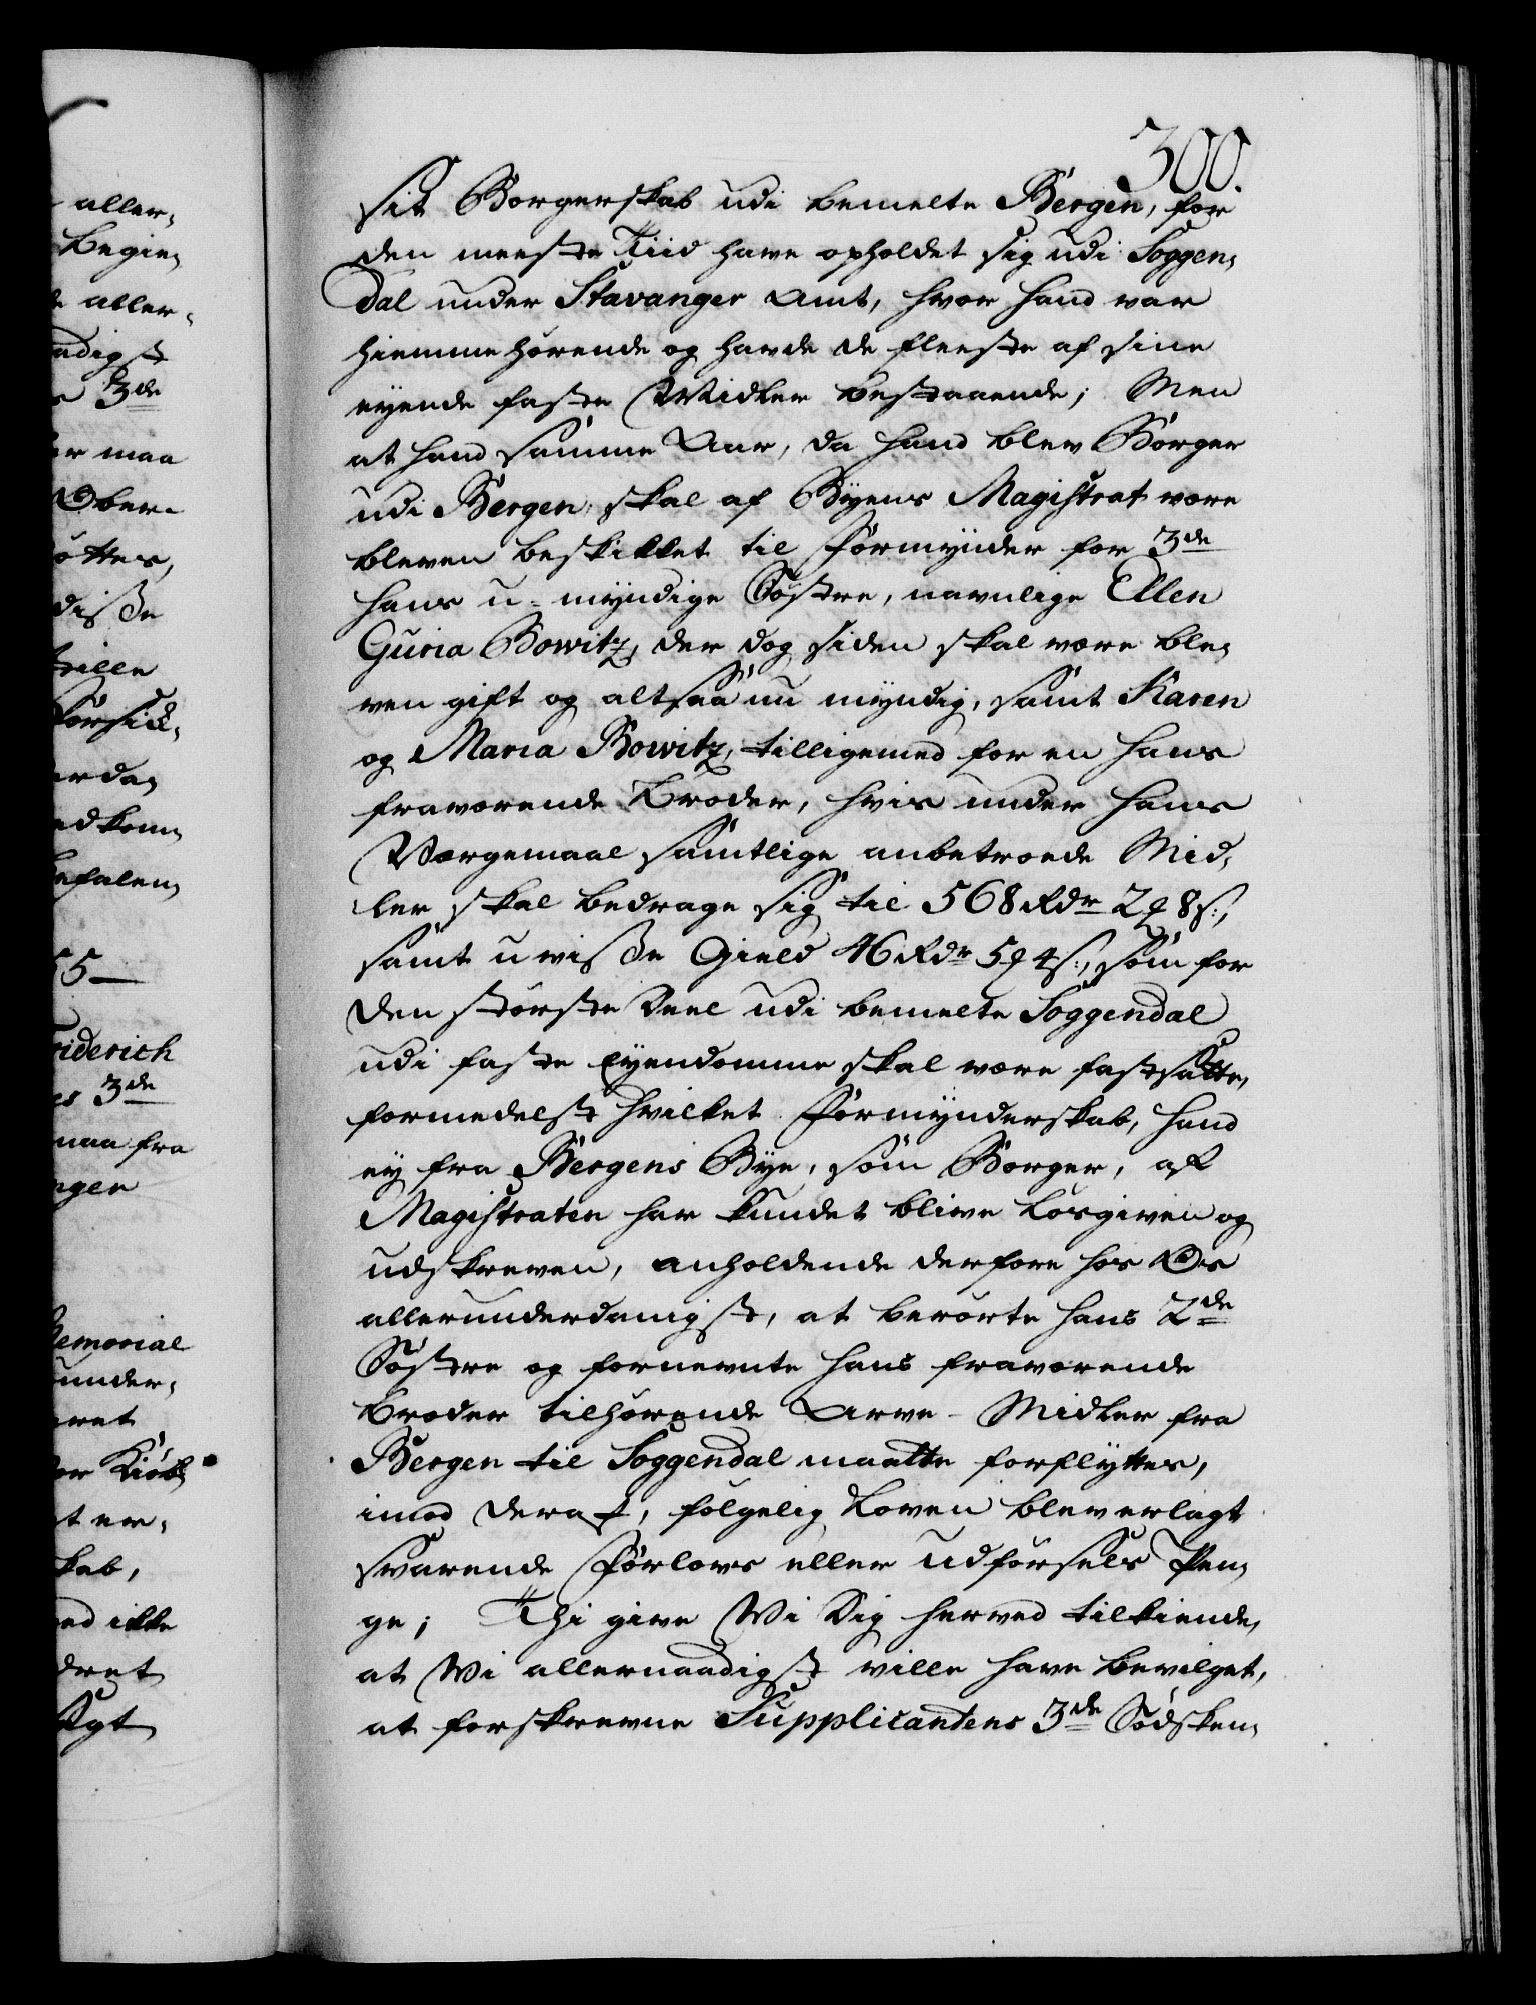 300.
aller,
begie,
aller,
adigst
3de
er maa
Ober-
ötter,
diße
rille
förfid,
erda,
ed kom,
efalen,
55-
riderich
3de
maa fra
ngen
Memorial
under,
eret
or Kiöb,
t er,
kab,
ed ikke
dret
sigt
sit Borgerskab udi bemelte Bergen, for
den meeste Tiid have opholdet sig udi Soggen,
dal under Stavanger Amt, hvor hand var
hiemmehørende og havde de fleeste af sine
eyende faste Midler bestaaende; Men
at hand samme Aar, da hand blev Borger
udi Bergen, skal af Byens Magistrat være
bleven beskikket til Formynder for 3de
hans u-myndige Søstre, navnlige Ellen
Guria Bowitz, der dog siden skal være ble,
ven gift og altsaa nu myndig, samt Karen
og Maria Bowitz, tilligemed for en hans
fraværende Broder, hvis under hans
Værgemaal samtlige anbetroede Mid,
ler skal bedrage sig til 568 Rdr 2 ꝑ 8 s:,
samt uviße Gield 46 Rdr 5 ꝑ 4 s:, som for
den største Deel udi bemelte Soggendal
udi faste Eyendomme skal være fastsatte,
formedelst hvilket Formynderskab, hand
ey fra Bergens Bye, som Borger, af
Magistraten har kundet blive løsgiven og
udskreven, anholdende derfore hos Os
allerunderdanigst, at berørte hans 2de
Søstre og fornevnte hans fraværende
Broder tilhørende Arve-Midler fra
Bergen til Soggendal maatte forflyttes,
imod deraf, følgelig Loven blev erlagt
svarende Førlovs eller Udførsels Pen,
ge; Thi give Wi Dig herved tilkiende,
at Wi allernaadigst ville have bevilget,
at forskrevne Supplicantens 3de Södsken,